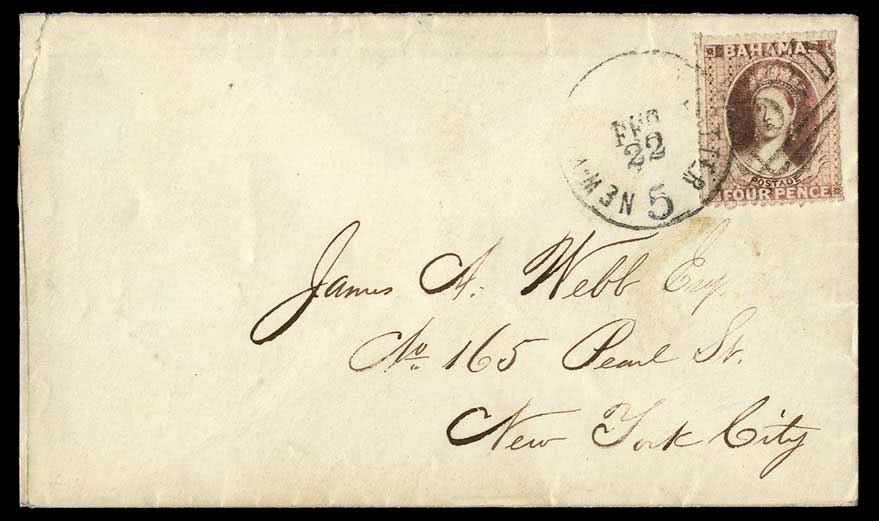 BAHAMA
POSTAGE
FOUR PENCE
FEB
22
NEW
5
James A. Webb Esq
No 165 Pearl St.
New York City